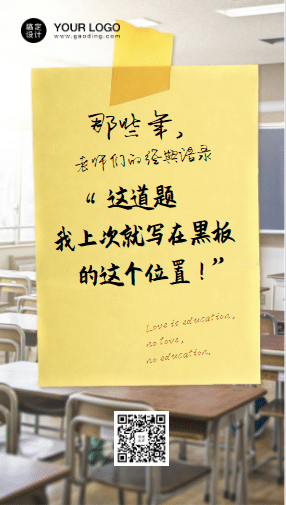 搞定
设计
YOUR LOGO
www.gaoding.com
那些年，
老师们的经典语录
“这道题
我上次就写在黑板
的这个位置！”
Love is education,
no love,
no education.